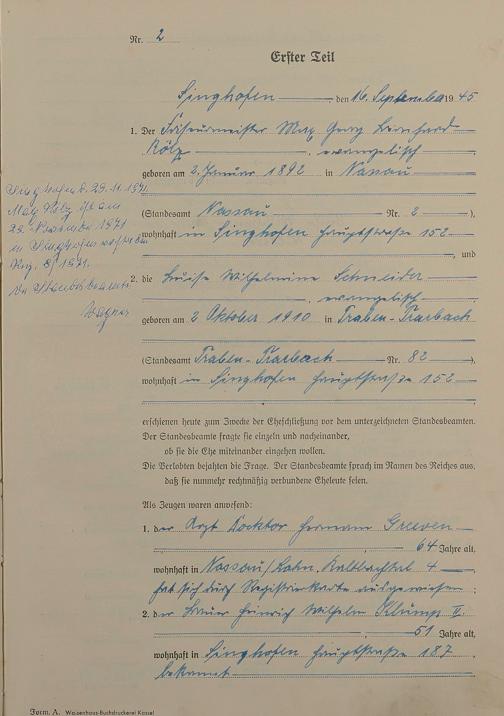 Nr. 2
Erster Teil
Singhofen, den 16. September 1945
1. Der Friseurmeister Max Georg Leonhard
Kölz, evangelisch
geboren am 2. Januar 1892 in Nassau
(Standesamt Nassau Nr. 2),
wohnhaft in Singhofen Hauptstraße 152
, und
2. die Luise Wilhelmine Schneider
, evangelisch
geboren am 2 Oktober 1910 in Traben-Trarbach
(Standesamt Traben-Trarbach Nr. 82),
wohnhaft in Singhofen Hauptstraße 152
erschienen heute zum Zwecke der Eheschließung vor dem unterzeichneten Standesbeamten.
Der Standesbeamte fragte sie einzeln und nacheinander,
ob sie die Ehe miteinander eingehen wollen.
Die Verlobten bejahten die Frage. Der Standesbeamte sprach im Namen des Reiches aus,
daß sie nunmehr rechtmäßig verbundene Eheleute seien.
Als Zeugen waren anwesend:
1. der Arzt Docktor Hermann Greeven
, 64 Jahre alt,
wohnhaft in Nassau/Lahn, Kaltbachtal 4
hat sich durch Registrierkarte ausgewiesen ;
2. der Bauer Heinrich Wilhelm Klump II.
, 51 Jahre alt,
wohnhaft in Singhofen Hauptstraße 187
bekannt
Singhofen d. 29.11.1971
Max Kölz ist am
29. November 1971
in Singhofen verstorben
Reg. 8/1971.
Der Standesbeamte
Wagner
Form. A. Waisenhaus-Buchdruckerei Kassel